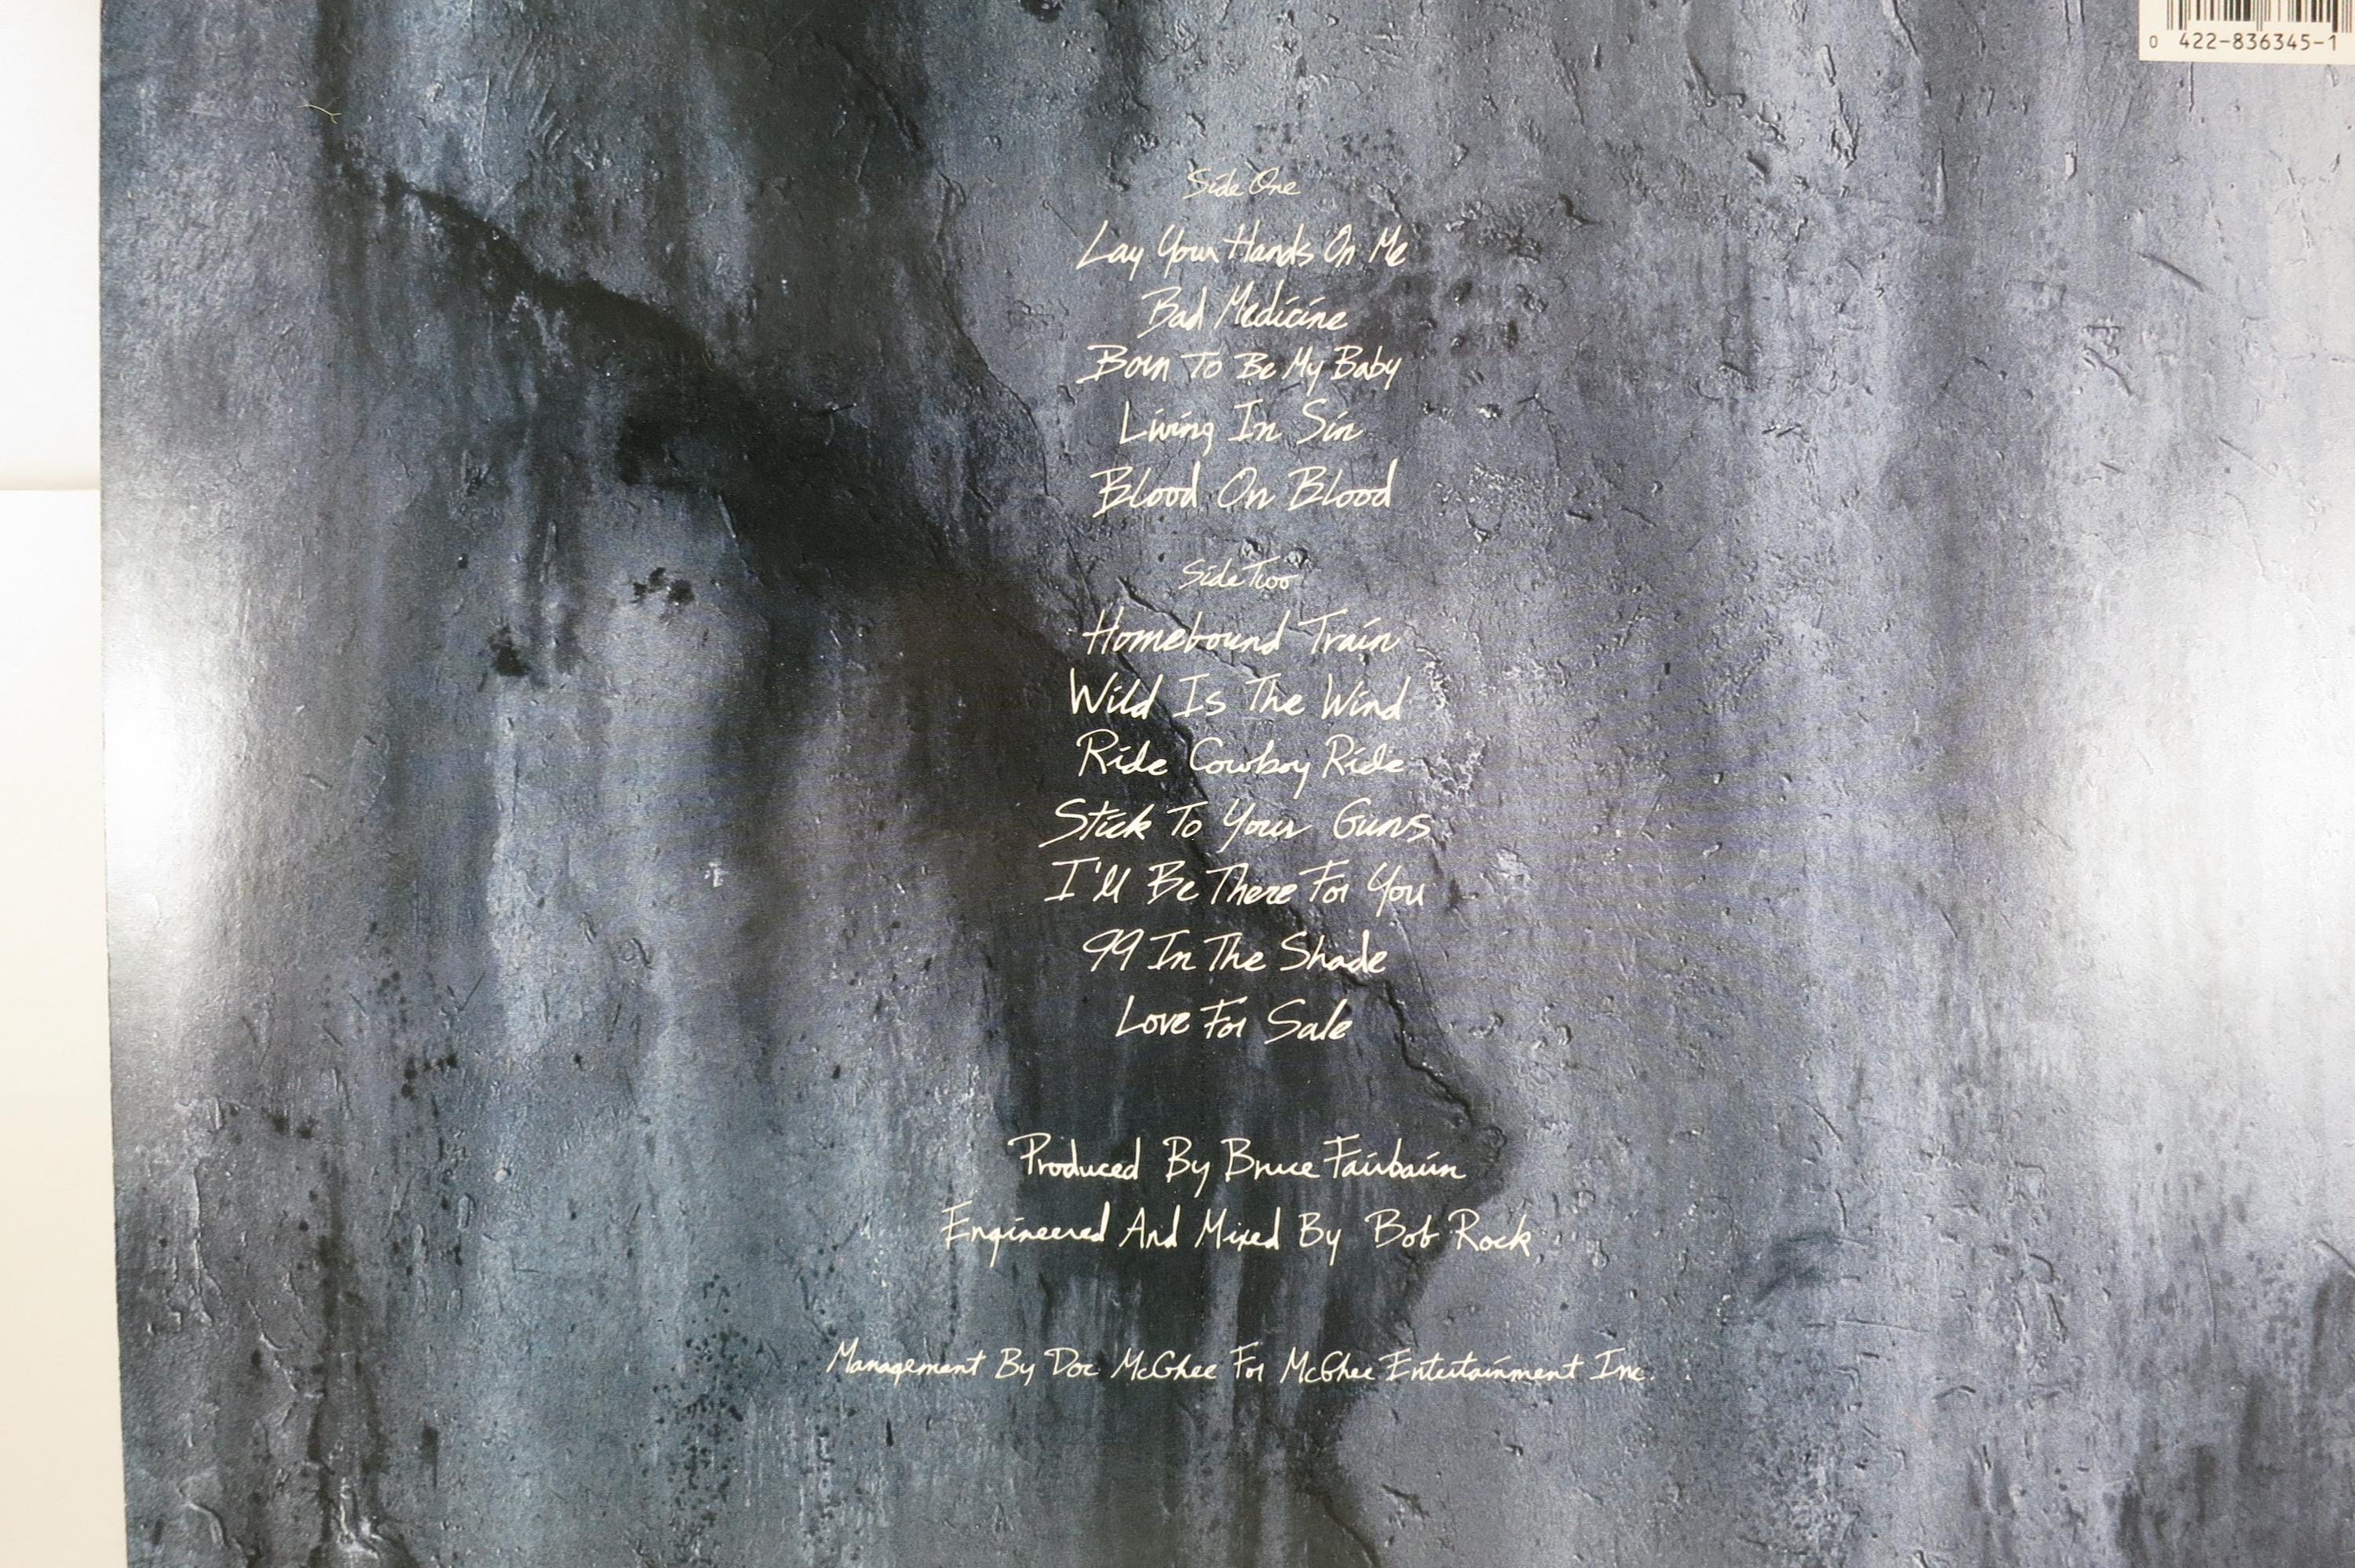 0 422-836345-1
Side One
Lay Your Hands On Me
Bad Medicine
Born To Be My Baby
Living In Sin
Blood On Blood
Side Two
Homebound Train
Wild Is The Wind
Ride Cowboy Ride
Stick To Your Guns
I'll Be There For You
99 In The Shade
Love For Sale
Produced By Bruce Fairbairn
Engineered And Mixed By Bob Rock
Management By Doc McGhee For McGhee Entertainment Inc.